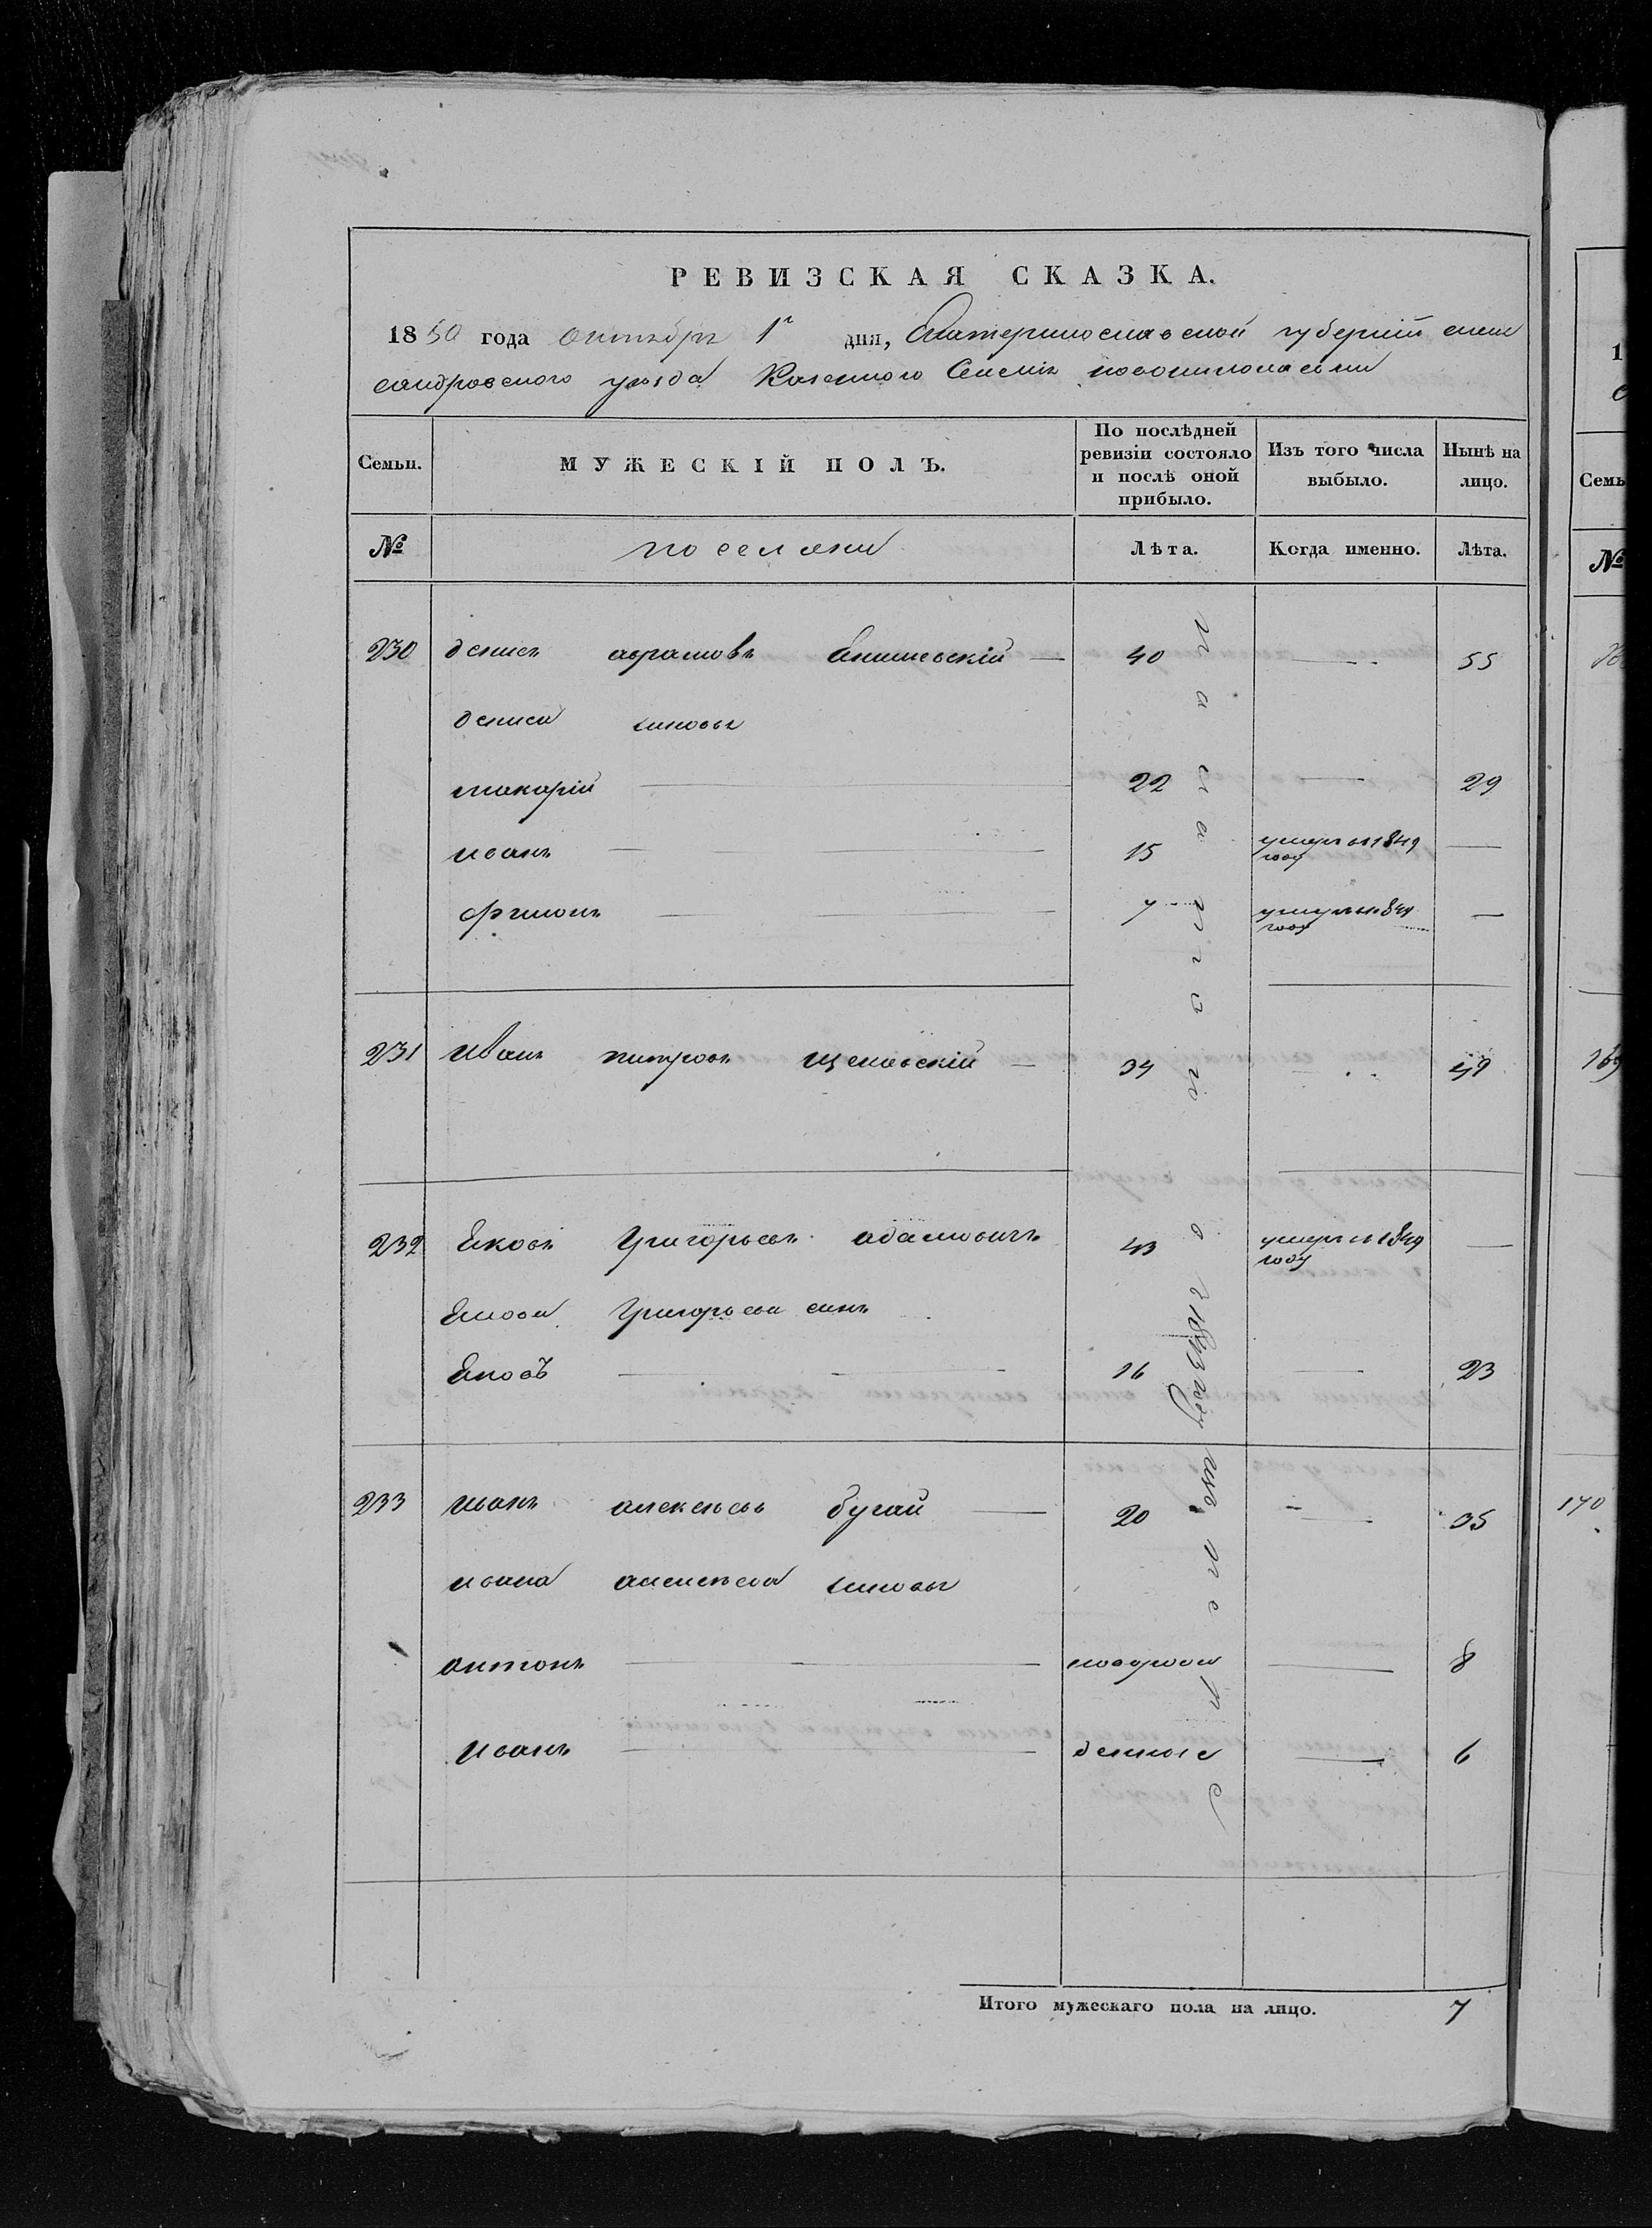 РЕВИЗСКАЯ СКАЗКА.
1850 года октября 1го дня, Екатеринославской губерніи алек
сандровского уѣзда Казенного Селенія новониколаевки
Семьи. МУЖЕСКІЙ ПОЛЪ. По послѣдней ревизіи состояло и послѣ оной прибыло. Изъ того числа выбыло. Нынѣ на лицо.
№ поселяни Лѣта. Когда именно. Лѣта.
230 денисъ аврамовъ 40 55
дениса синовы
макарій 22 29
иванъ 15 умеръ въ 1849 году
филимонъ 7 умеръ въ 1849 году
231 Иванъ петровъ 34 49
232 Яковъ Григорьевъ адамовичъ 43 умеръ въ 1849 году
Якова Григорьева синъ
Яковъ 16 23
233 иванъ алексѣевъ бугай 20 35
ивана алексѣева синовы
антонъ новорож 8
Иванъ денные 6
Итого мужескаго пола на лицо. 7